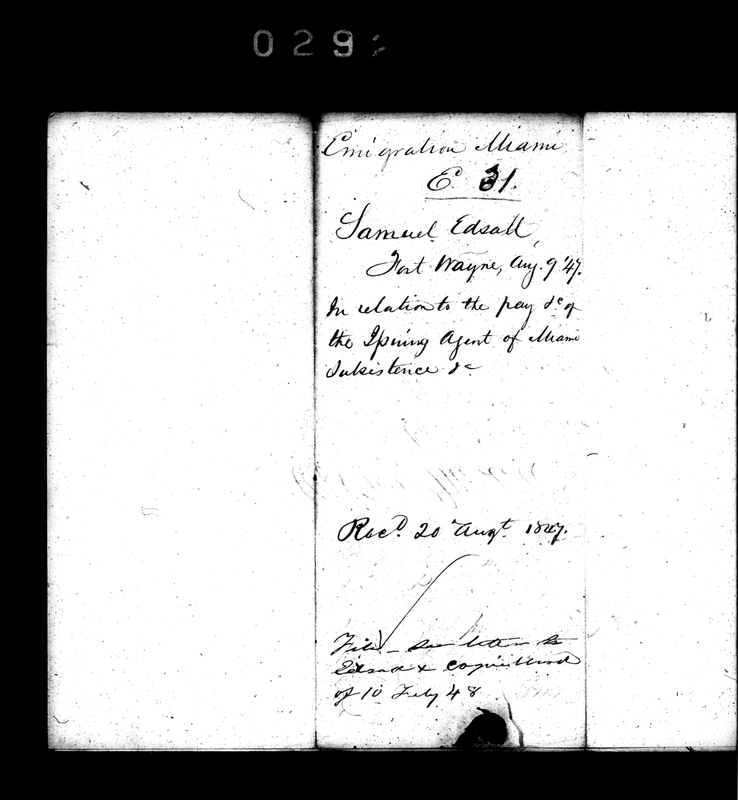 029
Emigration Miami
E. 31.
Samuel Edsall,
Fort Wayne, Aug. 9 '47.
In relation to the pay &c of
the Issuing Agent of Miami
Subsistence &c
Recd. 20 Augt. 1847.
File - See letter to
Edsall &
of 10 Feby 48